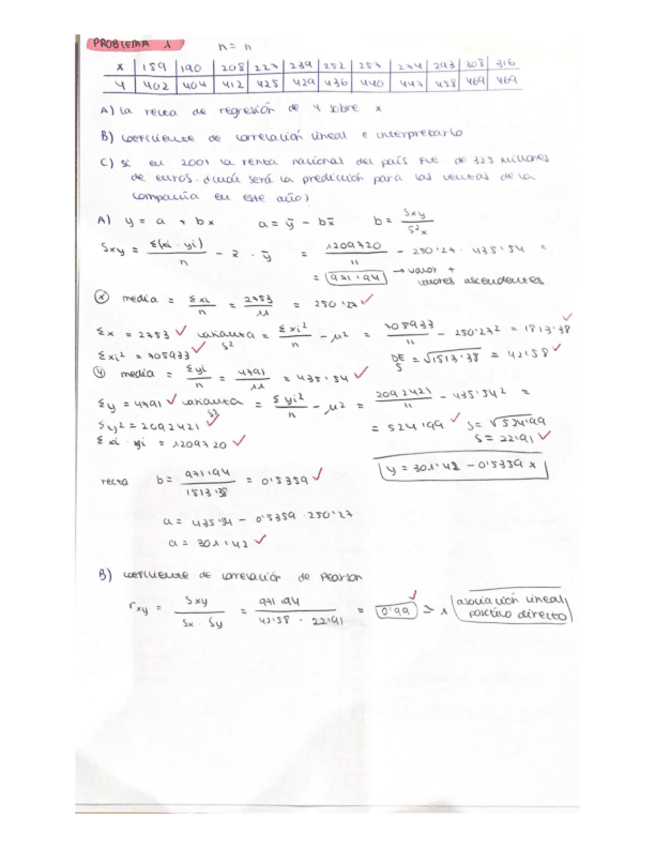 PROBLEMA 1 n = 11
x 189 190 208 227 239 252 257 274 293 308 316
y 402 404 412 425 429 436 440 447 458 469 469
A) La recta de regresión de y sobre x
B) Coeficiente de correlación lineal e interpretarlo
C) Si en 2001 la renta nacional del país fue de 325 millones
de euros. ¿Cuál será la predicción para las ventas de la
compañía en este año?
A) y = a + bx a = ȳ - bx̄ b = Sxy / S²x
Sxy = Σ(xi · yi) / n - x̄ · ȳ = 1209720 / 11 - 250'27 · 435'54 =
= 971'94 → valor +
valores ascendentes.
(x) media = Σxi / n = 2753 / 11 = 250'27 ✓
Σx = 2753 ✓ varianza S² = Σxi² / n - μ² = 705933 / 11 - 250'27² = 1813'38 ✓
Σxi² = 705933 ✓ DE S = √1813'38 = 42'58 ✓
(y) media = Σyi / n = 4791 / 11 = 435'54 ✓
Σy = 4791 ✓ varianza S² = Σyi² / n - μ² = 2092421 / 11 - 435'54² =
Σy² = 2092421 ✓ = 524'99 ✓ S = √524'99
Σxi · yi = 1209720 ✓ S = 22'91 ✓
y = 301'42 - 0'5359 x
recta b = 971'94 / 1813'38 = 0'5359 ✓
a = 435'54 - 0'5359 · 250'27
a = 301'42 ✓
B) coeficiente de correlación de Pearson
rxy = Sxy / Sx · Sy = 971'94 / 42'58 · 22'91 = 0'99 ✓ ≃ 1 asociación lineal
positivo directo